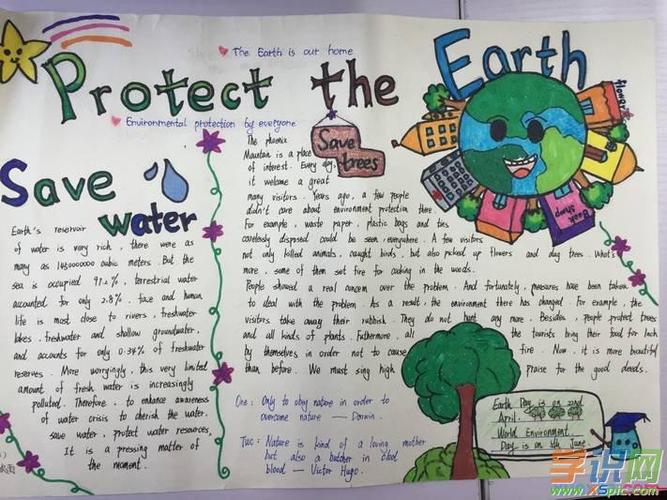 The Earth is our home
Protect the Earth
Environmental protection by everyone
flower
Book
shop
Save
trees
Save
water
Earth's reservoir
of water is very rich, there were as
many as 145000000 cubic meters. But the
sea is occupied 97.2%, terrestrial water
accounted for only 2.8%, face and human
life is most close to rivers, freshwater
lakes, freshwater and shallow groundwater,
and accounts for only 0.34% of freshwater
reserves. More worryingly, this very limited
amount of fresh water is increasingly
polluted. Therefore, to enhance awareness
of water crisis to cherish the water,
save water, protect water resources,
It is a pressing matter of
the moment.
The phoenix
Mountain is a place
of interest. Every day,
it welcome a great
many visitors. Years ago, a few people
didn't care about environment protection there.
For example, waste paper, plastic bags and ties
carelessly disposed could be seen everywhere. A few visitors
not only killed animals, caught birds, but also picked up flowers and dag trees. What's
more, some of them set fire for cooking in the woods.
People showed a real concern over the problem. And fortunately, measures have been taken
to deal with the problem. As a result, the environment there has changed. For example, the
visitors take away their rubbish. They do not hunt any more. Besides, people protect trees
and all kinds of plants. Futhermore, all the tourists bring their food for lach
by themselves in order not to cause fire. Now, it is more beautiful
than before. We must sing high praise for the good deeds.
One: Only to obey nature in order to
overcome nature — Darwin.
Two: Nature is kind of a loving mother
but also a butcher in cool
blood — Victor Hugo.
Earth Day is on 22nd
April.
World Environment
Day is on 5th June.
学识网
www.XSpic.com